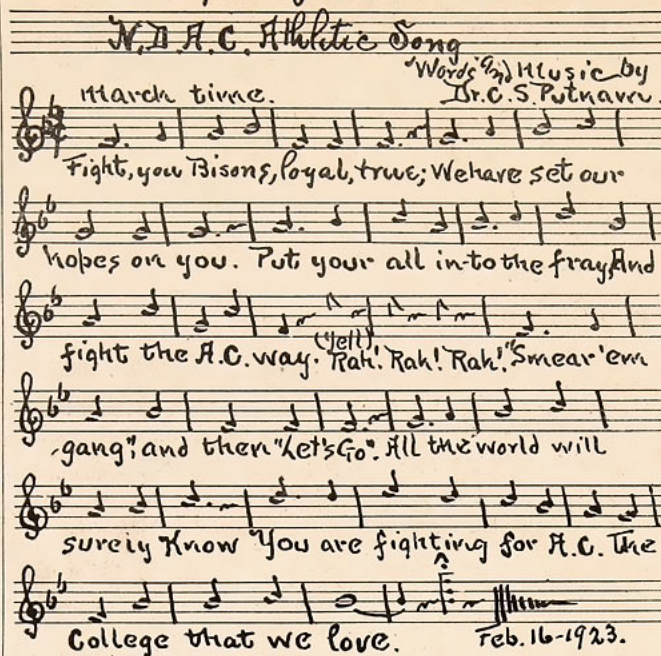 N.D.A.C. Athletic Song
Words and Music by
March time. Dr. C. S. Putnam.
Fight, you Bisons, loyal, true; We have set our
hopes on you. Put your all in-to the fray, And
fight the A.C. way. (Yell) Rah! Rah! Rah! "Smear 'em
gang"; and then "Let's Go". All the world will
surely Know You are fighting for A.C. The
College that we love. Feb. 16-1923.